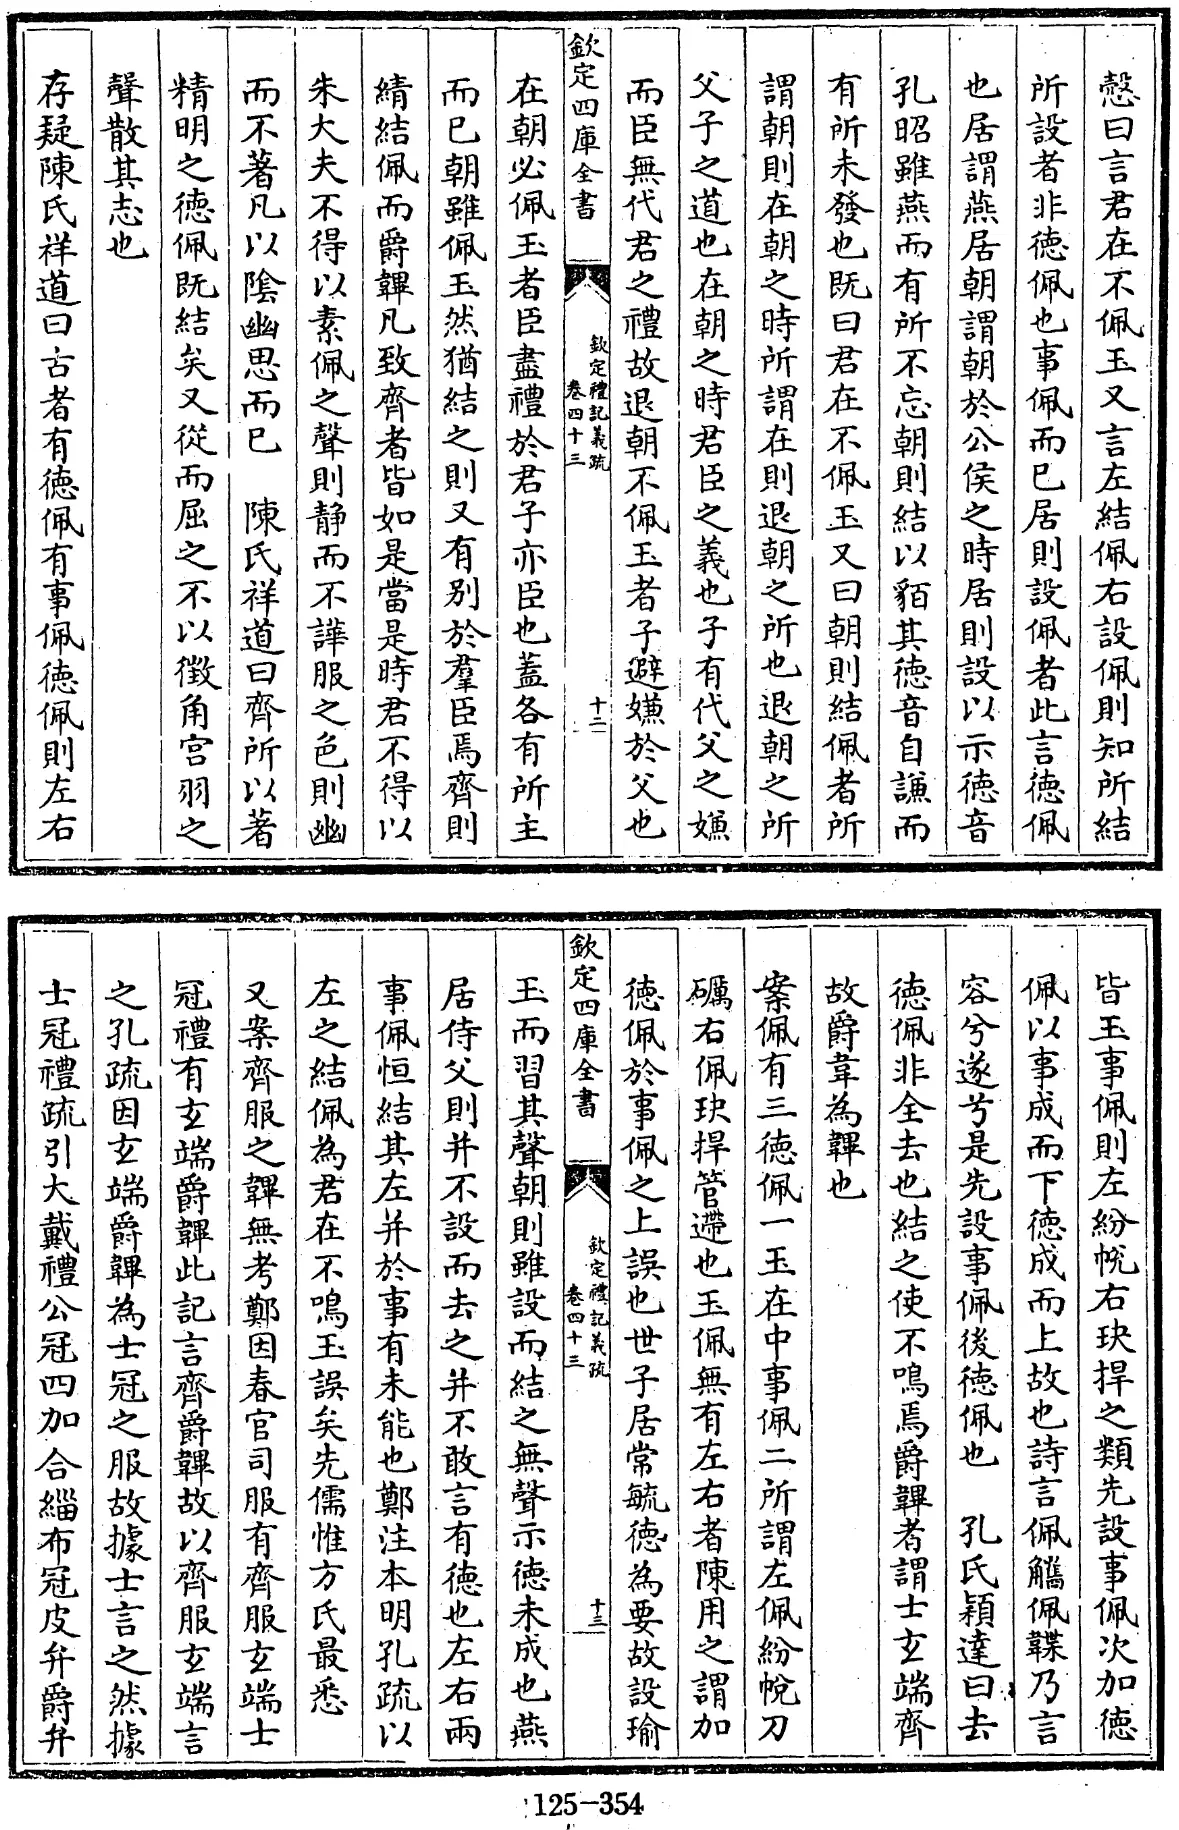 慤曰言君在不佩玉又言左結佩右設佩則知所結
所設者非德佩也事佩而已居則設佩者此言德佩
也居謂燕居朝謂朝於公侯之時居則設以示德音
孔昭雖燕而有所不忘朝則結以貊其德音自謙而
有所未發也既曰君在不佩玉又曰朝則結佩者所
謂朝則在朝之時所謂在則退朝之所也退朝之所
父子之道也在朝之時君臣之義也子有代父之嫌
而臣無代君之禮故退朝不佩玉者子避嫌於父也
欽定四庫全書
欽定禮記義疏
卷四十三
十二
在朝必佩玉者臣盡禮於君子亦臣也蓋各有所主
而已朝雖佩玉然猶結之則又有别於羣臣焉齊則
綪結佩而爵韠凡致齊者皆如是當是時君不得以
朱大夫不得以素佩之聲則静而不譁服之色則幽
而不著凡以陰幽思而已　陳氏祥道曰齊所以著
精明之德佩既結矣又從而屈之不以徵角宫羽之
聲散其志也
存疑陳氏祥道曰古者有德佩有事佩德佩則左右
皆玉事佩則左紛帨右玦捍之類先設事佩次加德
佩以事成而下德成而上故也詩言佩觿佩韘乃言
容兮遂兮是先設事佩後德佩也　孔氏穎達曰去
德佩非全去也結之使不鳴焉爵韠者謂士玄端齊
故爵韋為韠也
案佩有三德佩一玉在中事佩二所謂左佩紛帨刀
礪右佩玦捍管遰也玉佩無有左右者陳用之謂加
德佩於事佩之上誤也世子居常毓德為要故設瑜
欽定四庫全書
欽定禮記義疏
卷四十三
十三
玉而習其聲朝則雖設而結之無聲示德未成也燕
居侍父則并不設而去之并不敢言有德也左右兩
事佩恒結其左并於事有未能也鄭注本明孔疏以
左之結佩為君在不鳴玉誤矣先儒惟方氏最悉
又案齊服之韠無考鄭因春官司服有齊服玄端士
冠禮有玄端爵韠此記言齊爵韠故以齊服玄端言
之孔疏因玄端爵韠為士冠之服故據士言之然據
士冠禮疏引大戴禮公冠四加合緇布冠皮弁爵弁
125-354